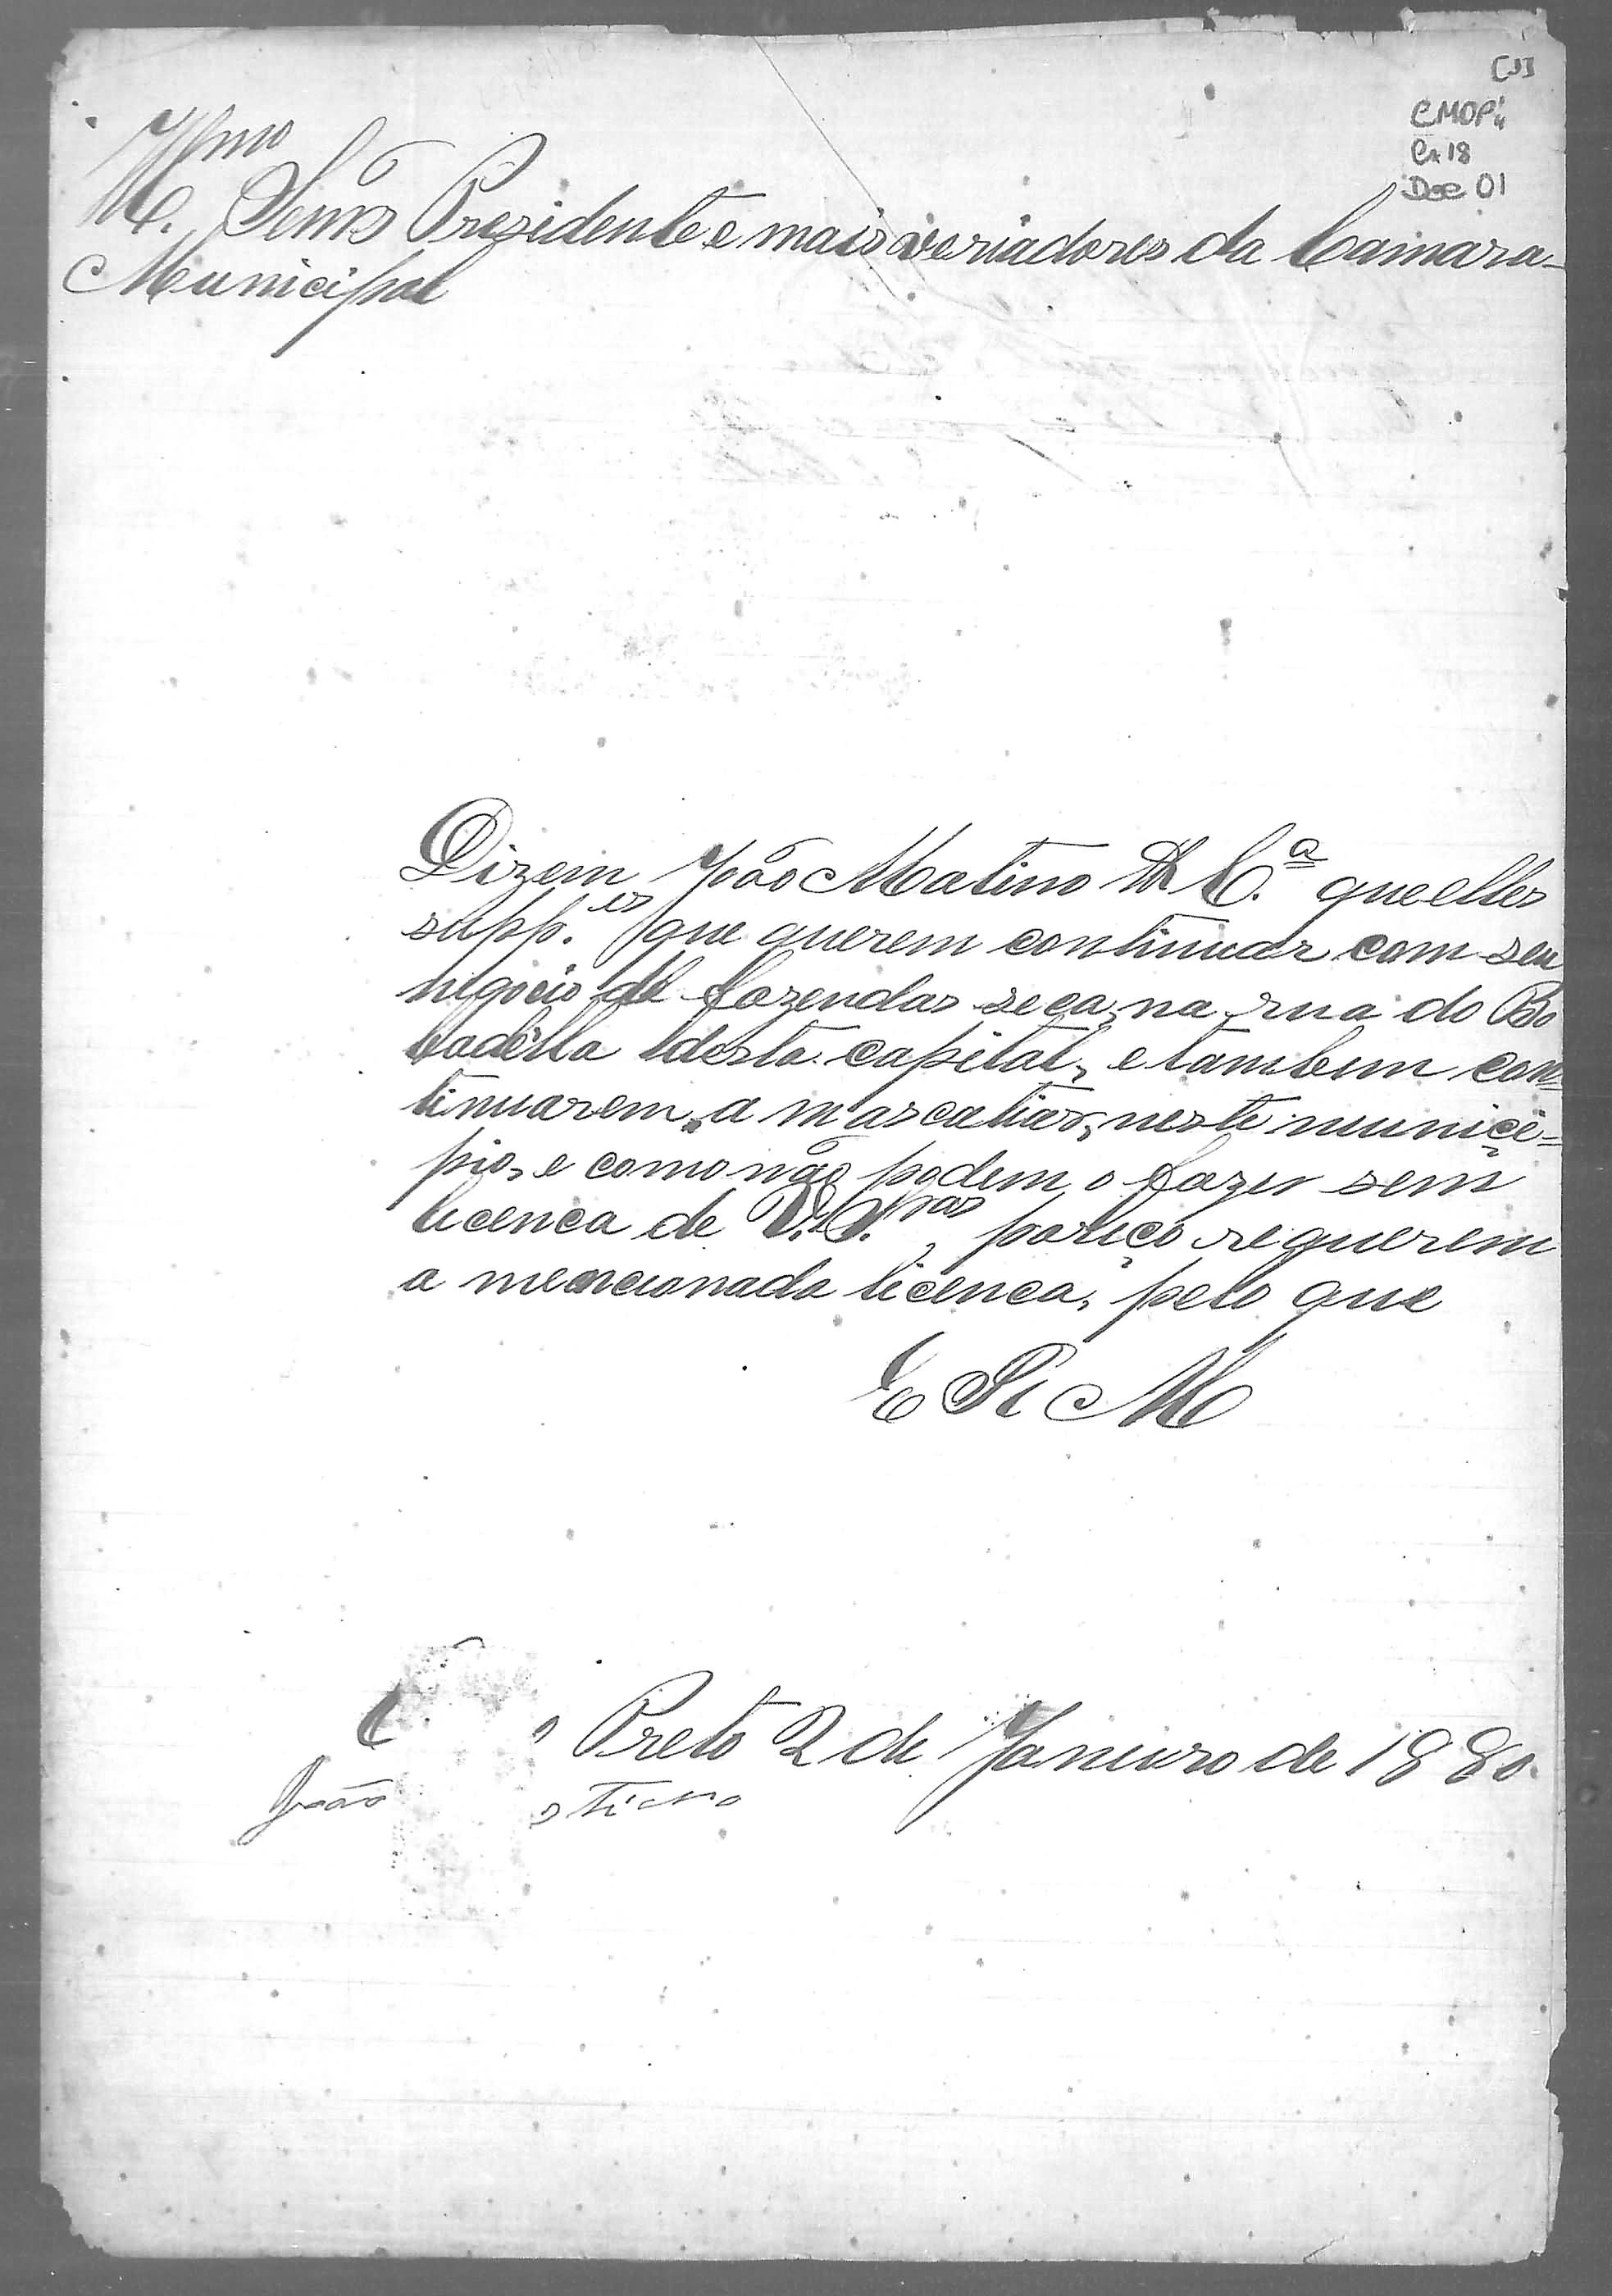 [1]
CMOP
Cx 18
Doc 01
Illmo
M. Senrs Presidente e mais veriadores da Camara
Municipal
Dizem João Matino & C.ª que elles
supp.es que querem continuar com seu
negocio de fazendas seca, na rua do Bo
badella desta capital, e tambem con=
tinuarem, a mascatiar, neste municí=
pio, e como não podem o fazer sem
licenca de V. S.ras, poriço requerem
a mencionada licenca, pelo que
E R M
Preto 2 de Janeiro de 1880.
João tino